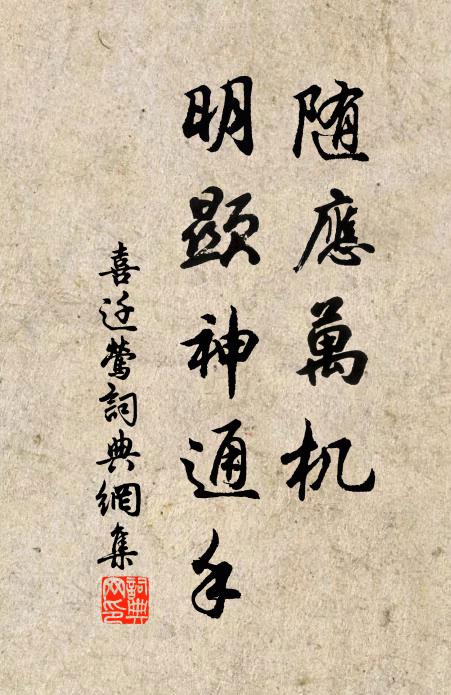 随應萬机
明顯神通手
喜迁鶯詞典網集
詞典